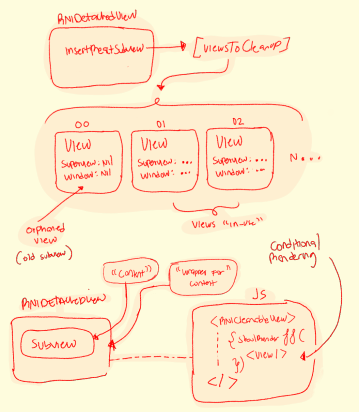 RNIDetachedView
insertReactSubview
[viewsToCleanup]
00
01
02
View
Superview: Nil
Window: Nil
View
Superview: •••
Window: •••
View
Superview: •••
Window: •••
N •••
orphaned
view
(old subview)
Views "in-use"
Conditional
Rendering
"Content"
"Wrapper for
content"
RNIDetachedView
Subview
JS
<RNICleanableView>
{shouldRender && (
<View/>
)}
</>